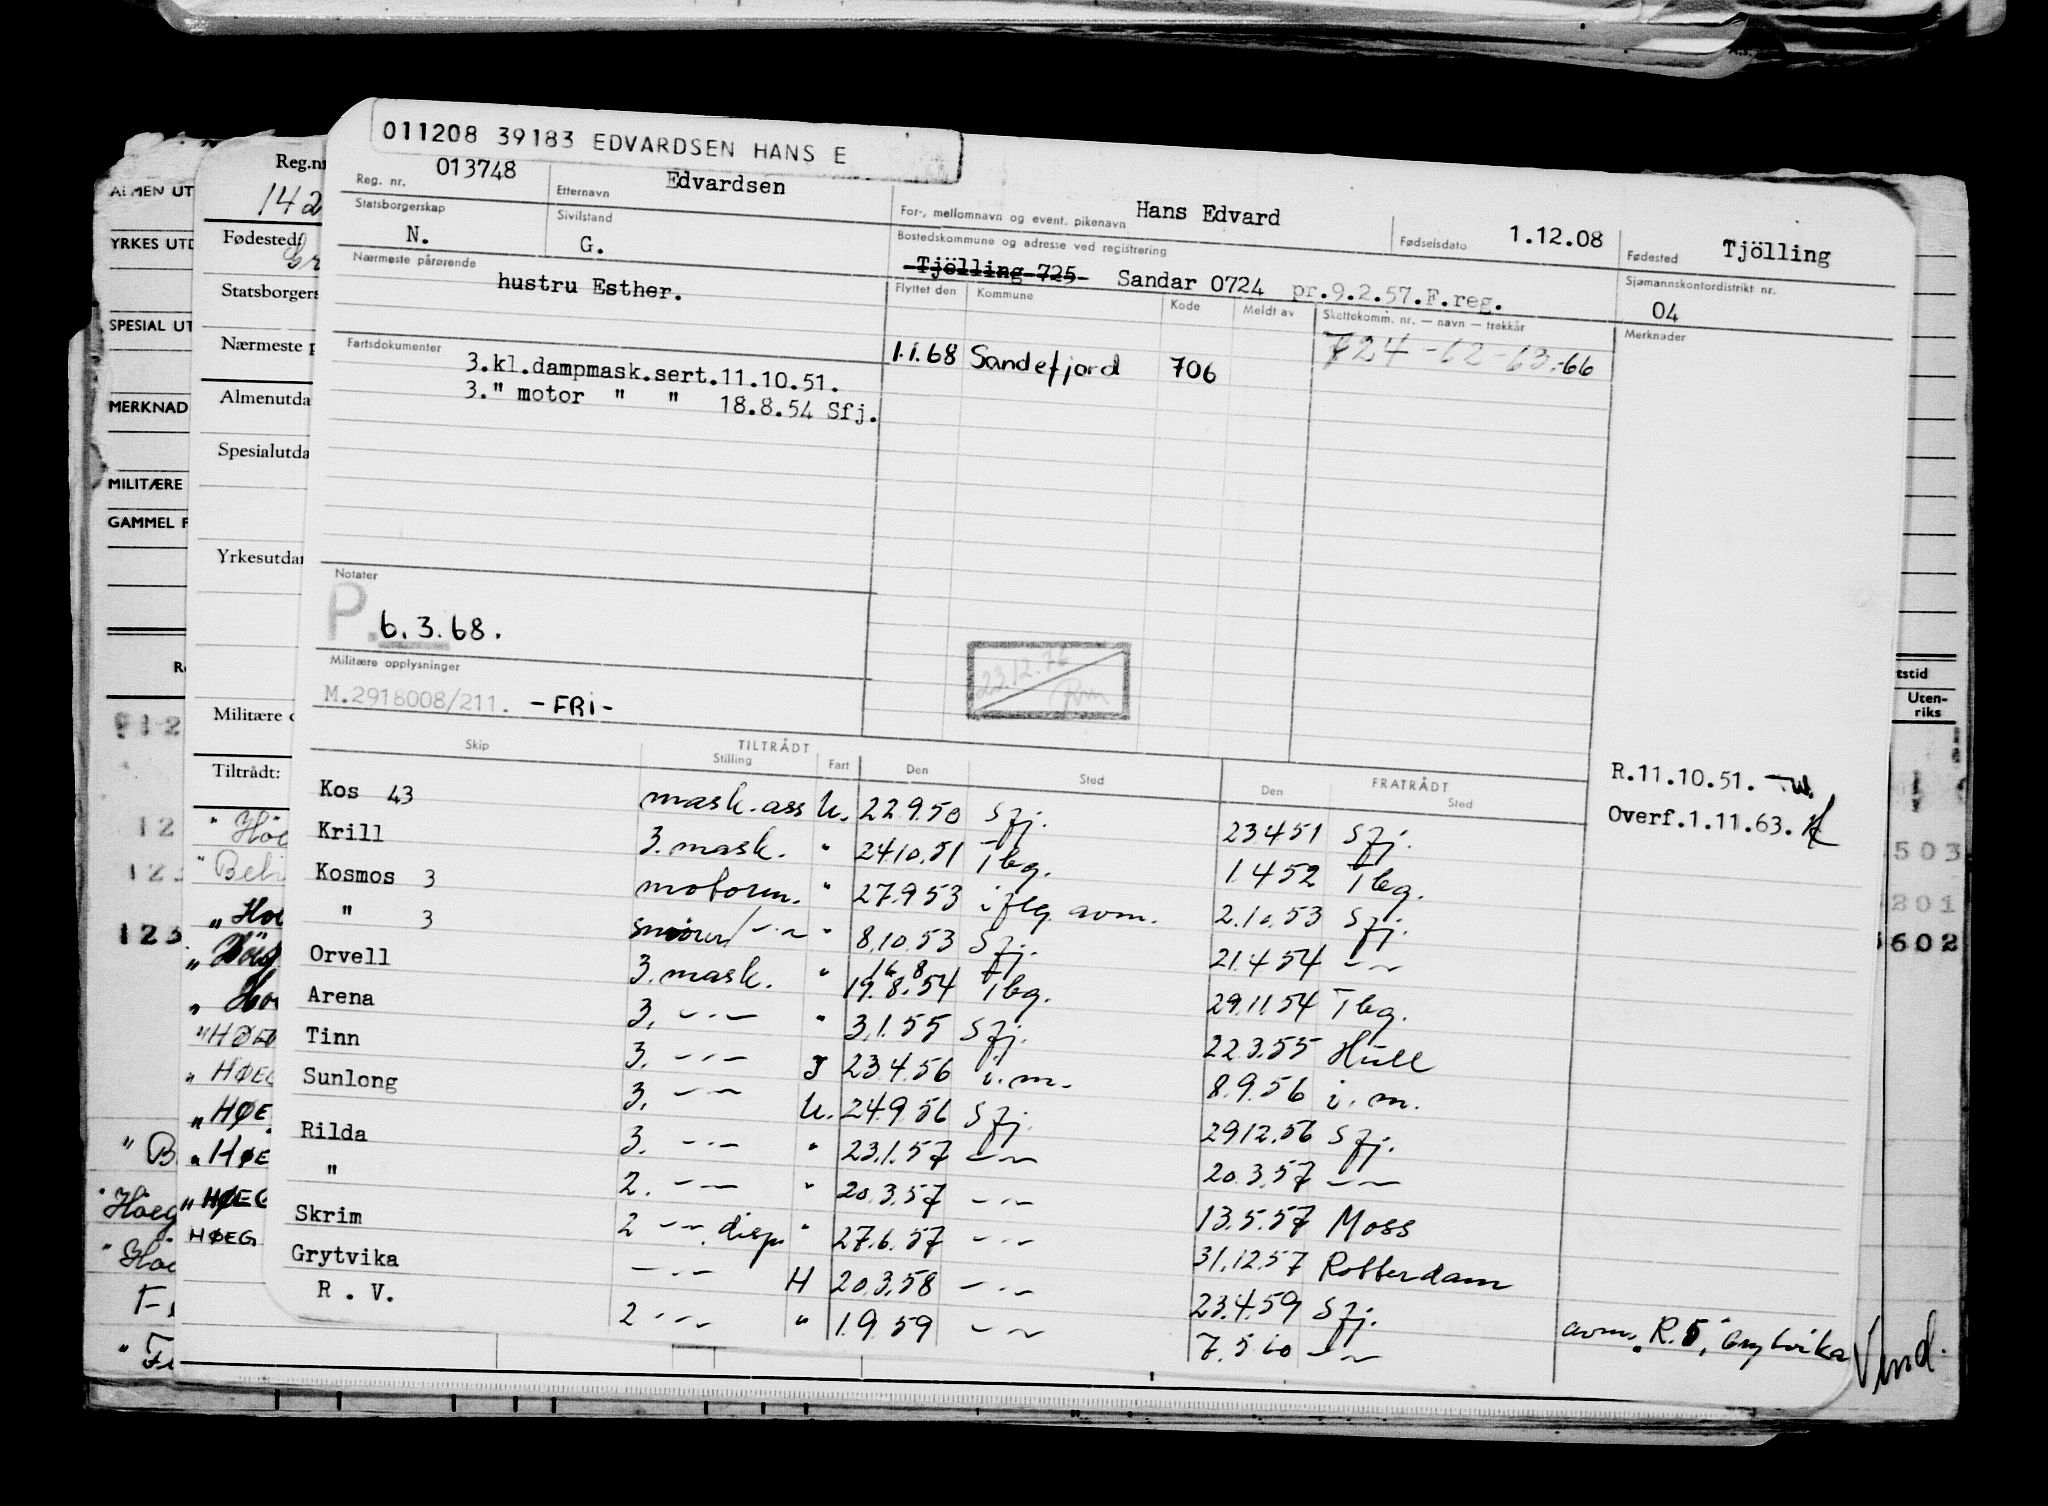 011208 39183 EDVARDSEN HANS E
Reg. nr. 013748 Etternavn Edvardsen For-, mellomnavn og event. pikenavn Hans Edvard Fødselsdato 1.12.08 Fødested Tjölling
Statsborgerskap N. Sivilstand G. Bostedskommune og adresse ved registrering Tjölling 725 Sandar 0724 pr.9.2.57.F.reg. Sjømannskontordistrikt nr. 04
Nærmeste pårørende hustru Esther. Flyttet den Kommune Kode Meldt av Skattekomm. nr. — navn — trekkår Merknader
1.1.68 Sandefjord 706 724-62-63-66
Fartsdokumenter
3.kl.dampmask.sert.11.10.51.
3." motor " " 18.8.54 Sfj.
Notater
P. 6.3.68.
23.12.76
Militære opplysninger
M.2918008/211. -FRI-
Skip TILTRÅDT Stilling Fart Den Sted FRATRÅDT Den Sted
R.11.10.51.
Overf.1.11.63.
Kos 43 mask.ass U. 22.9.50 Sfj. 23.4.51 Sfj.
Krill 3. mask. " 24.10.51 Tbg. 1.4.52 Tbg.
Kosmos 3 motorm. " 27.9.53 iflg. avm. 2.10.53 Sfj.
" 3 smører/-"- " 8.10.53 Sfj. 21.4.54 -"-
Orvell 3. mask. " 19.8.54 Tbg. 29.11.54 Tbg.
Arena 3. -"- " 3.1.55 Sfj. 22.3.55 Hull
Tinn 3. -"- J 23.4.56 i.m. 8.9.56 i.m.
Sunlong 3. -"- U. 24.9.56 Sfj. 29.12.56 Sfj.
Rilda 3. -"- " 23.1.57 -"- 20.3.57 -"-
" 2. -"- " 20.3.57 -"- 13.5.57 Moss
Skrim 2 -"- disp " 27.6.57 -"- 31.12.57 Rotterdam
Grytvika -"- H 20.3.58 -"- 23.4.59 Sfj.
R . V. 2 -"- " 1.9.59 -"- 7.5.60 -"- avm. R.5, Grytvika
Vend.
Reg.nr
142
Fødested:
Gr
Statsborgers
Nærmeste p
Almenutda
Spesialutda
Yrkesutdan
Militære o
Tiltrådt:
ALMEN UT
YRKES UTD
SPESIAL UT
MERKNAD
MILITÆRE
GAMMEL F
tstid
Uten-
riks
503
201
602
" HØEG
HØEG